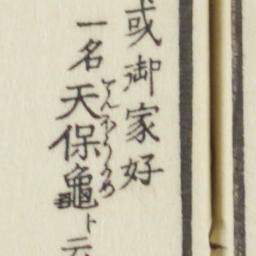 或御家好
一名天保龜ト云
てんほうかめ